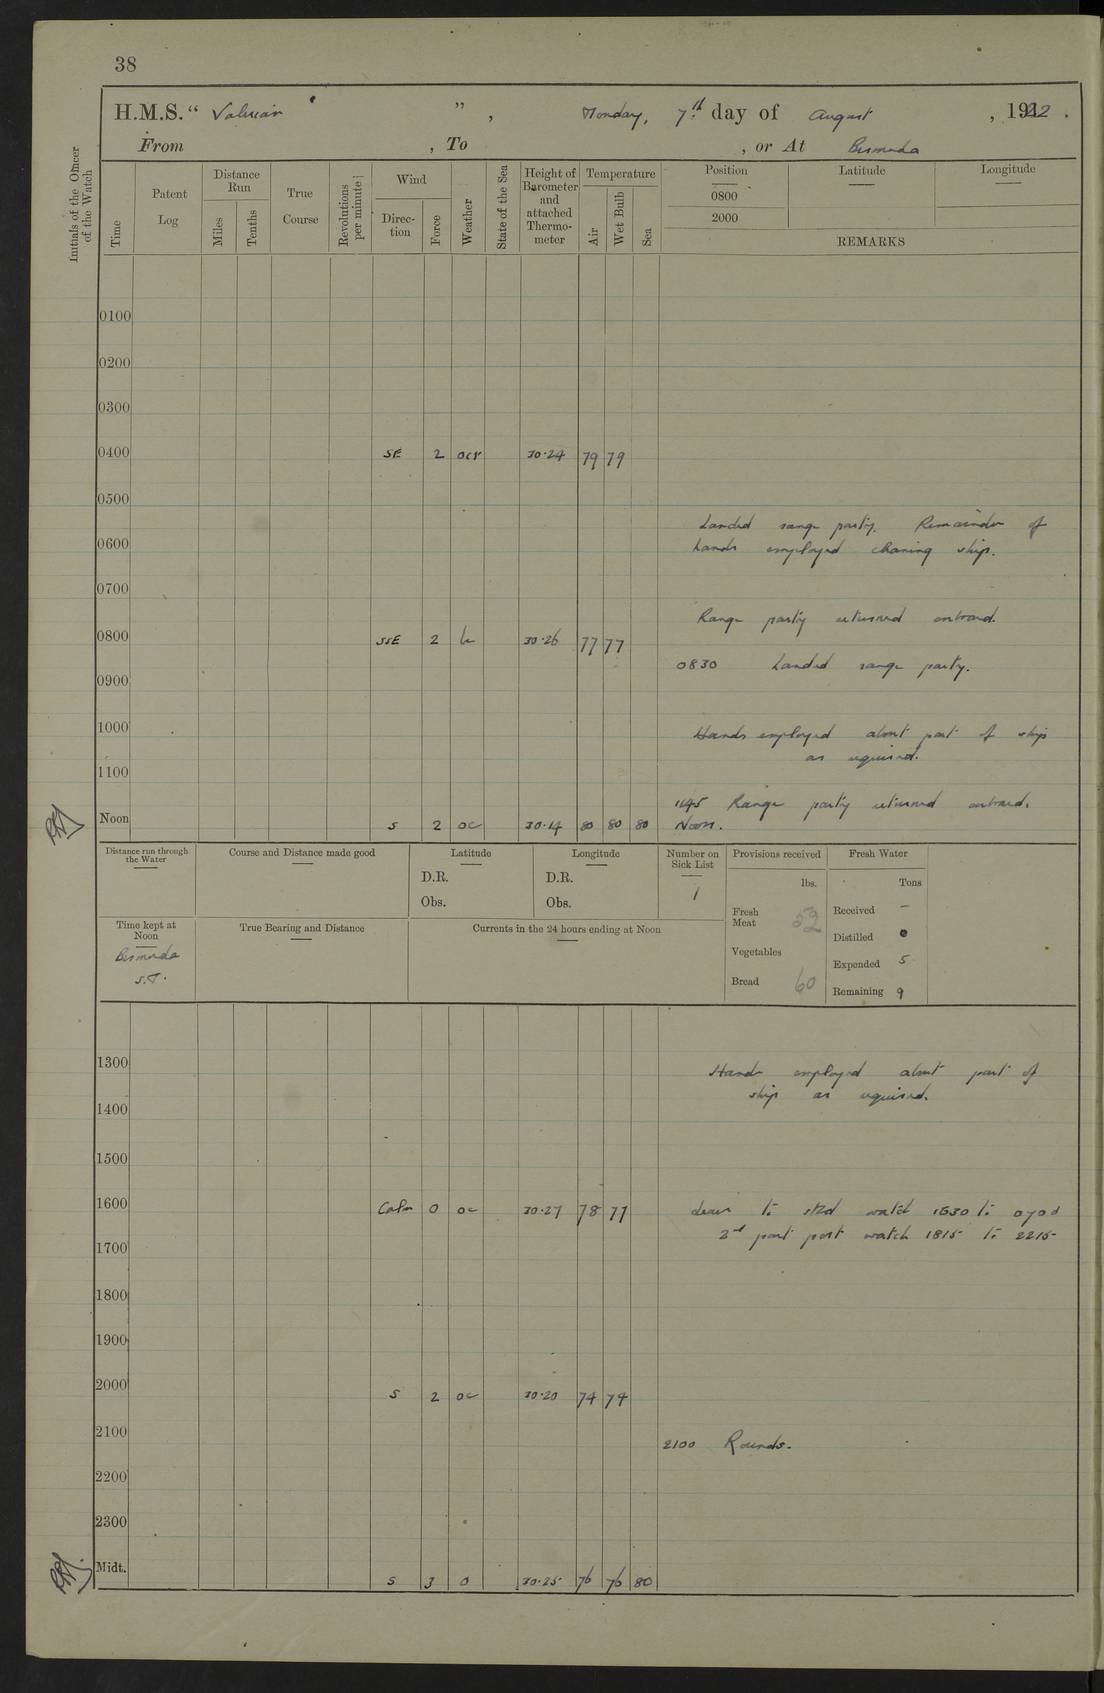 38
H.M.S. " Valerian ", Monday, 7th day of August, 1922.
From , To , or At Bermuda
Initials of the Officer of the Watch
Time
Patent Log
Distance Run
Miles
Tenths
True Course
Revolutions per minute
Wind
Direction
Force
Weather
State of the Sea
Height of Barometer and attached Thermometer
Temperature
Air
Wet Bulb
Sea
Position
Latitude
Longitude
0800
2000
REMARKS
0100
0200
0300
0400 SE 2 ocr 30.24 79 79
0500
Landed range party. Remainder of
0600 hands employed cleaning ship.
0700
Range party returned onboard.
0800 SSE 2 bc 30.26 77 77
0830 Landed range party.
0900
1000 Hands employed about part of ship
as required.
1100
1145 Range party returned onboard.
Noon S 2 oc 30.14 80 80 80 Noon.
Distance run through the Water
Course and Distance made good
Latitude
D.R.
Obs.
Longitude
D.R.
Obs.
Number on Sick List
1
Provisions received
lbs.
Fresh Meat 52
Vegetables
Bread 60
Fresh Water
Tons
Received –
Distilled
Expended 5
Remaining 9
Time kept at Noon
Bermuda
S.T.
True Bearing and Distance
Currents in the 24 hours ending at Noon
1300 Hands employed about part of
ship as required.
1400
1500
1600 Calm 0 oc 30.27 78 77 Leave to stbd watch 1630 to 0700
2nd part port watch 1815 to 2215
1700
1800
1900
2000 S 2 oc 30.20 74 74
2100 2100 Rounds.
2200
2300
Midt. S 3 o 30.25 76 76 80